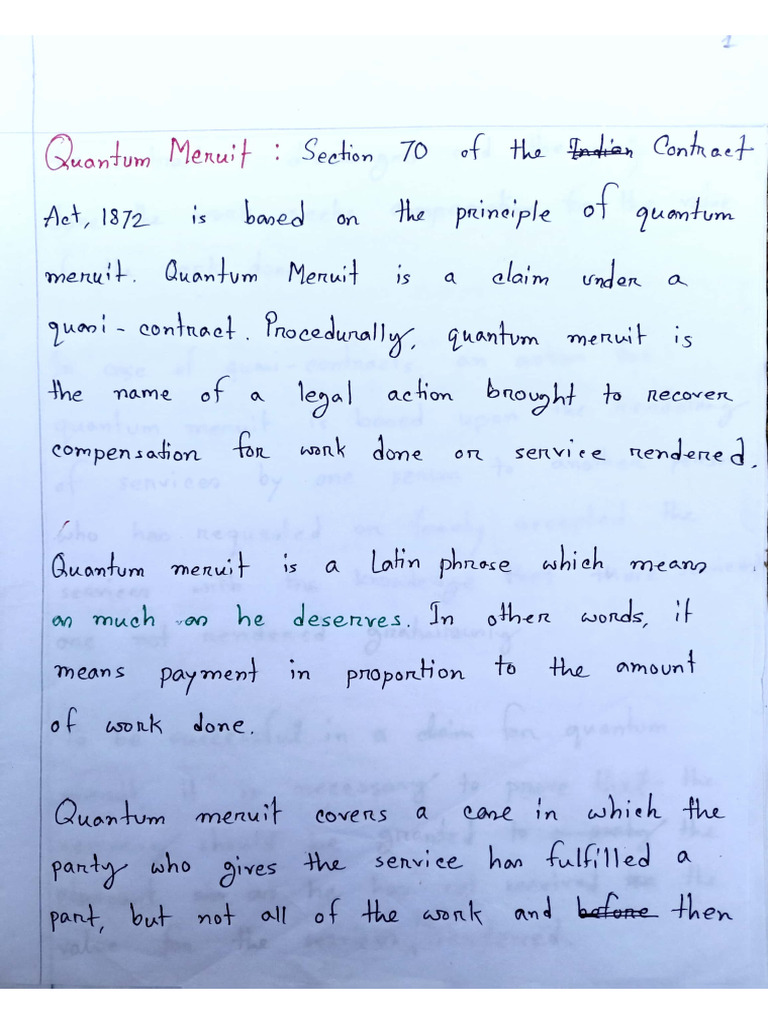 1
Quantum Meruit : Section 70 of the Indian Contract
Act, 1872 is based on the principle of quantum
meruit. Quantum Meruit is a claim under a
quasi-contract. Procedurally, quantum meruit is
the name of a legal action brought to recover
compensation for work done or service rendered.
Quantum meruit is a Latin phrase which means
as much as he deserves. In other words, it
means payment in proportion to the amount
of work done.
Quantum meruit covers a case in which the
party who gives the service has fulfilled a
part, but not all of the work and before then